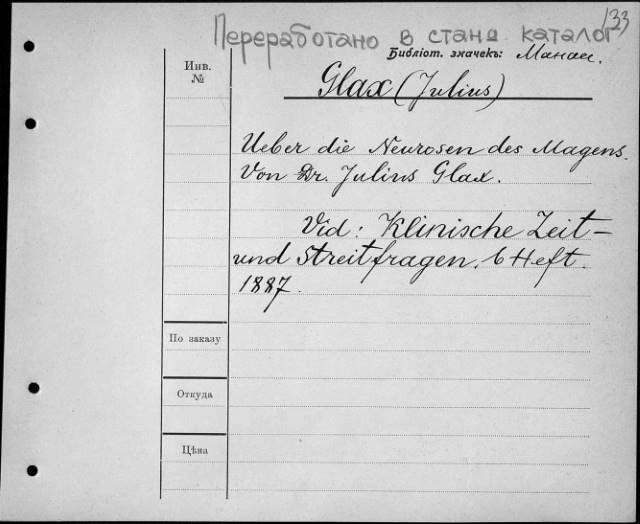 133
Переработано в станд каталог
Библіот. значекъ:
Инв.
№
Glax (Julius)
Ueber die Neurosen des Magens.
Von Dr. Julius Glax.
Vid: Klinische Zeit-
und Streitfragen. 6 Heft.
1887.
По заказу
Откуда
Цѣна